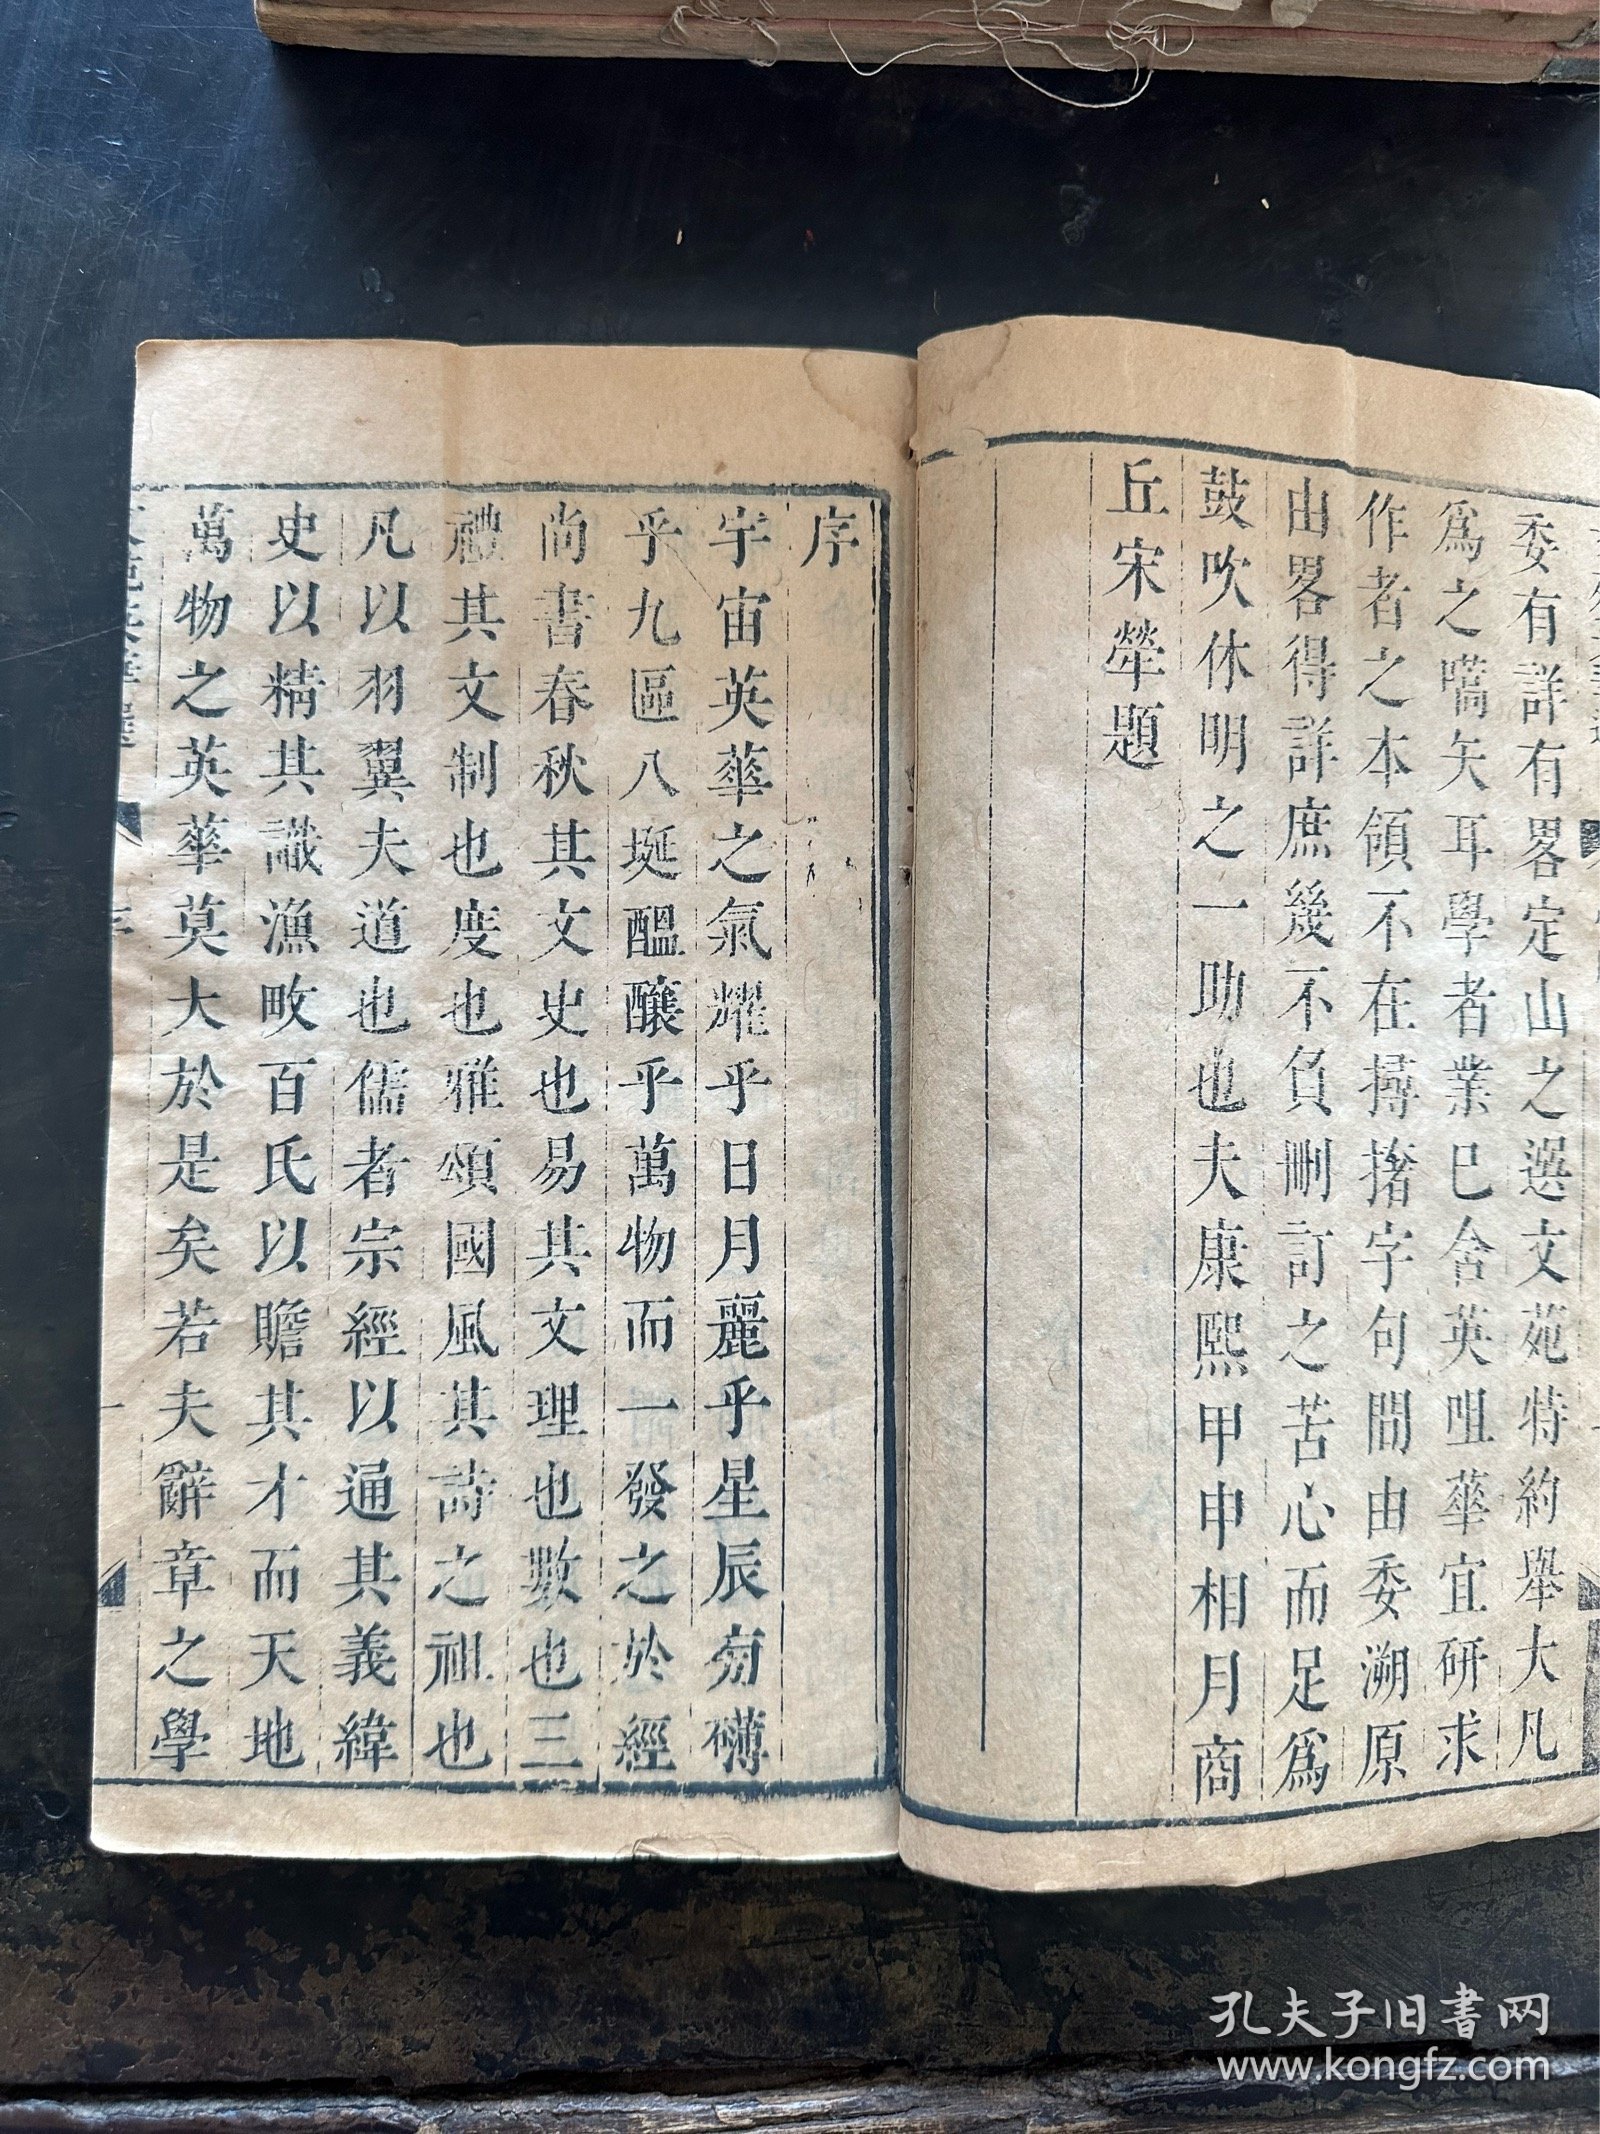 委有詳有畧定山之選文苑特約舉大凡
爲之嚆矢耳學者業已含英咀華宜研求
作者之本領不在撏撦字句間由委溯原
由畧得詳庶幾不負刪訂之苦心而足爲
鼓吹休明之一助也夫康熙甲申相月商
丘宋犖題
序
宇宙英華之氣耀乎日月麗乎星辰旁礴
乎九區八埏醞釀乎萬物而一發之於經
尚書春秋其文史也易其文理也數也三
禮其文制也度也雅頌國風其詩之祖也
凡以羽翼夫道也儒者宗經以通其義緯
史以精其識漁畋百氏以贍其才而天地
萬物之英華莫大於是矣若夫辭章之學
序
一
孔夫子旧書网
www.kongfz.com